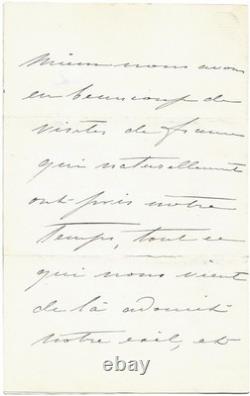 mieux nous avons
eu beaucoup de
visites de france
qui naturellement
ont pris notre
temps, tout ce
qui nous vient
de là adoucit
notre exil, et
© 164117.com